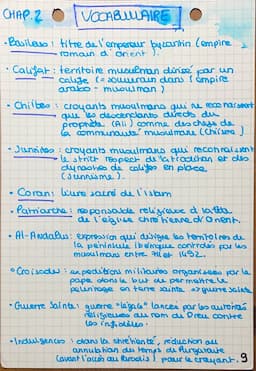 CHAP. 2 VOCABULAIRE
• Basileus : titre de l'empereur byzantin (empire
romain d'orient).
• Califat : territoire musulman dirigé par un
calife (= souverain dans l'empire
arabo-musulman)
• Chiites : croyants musulmans qui ne reconnaissent
que les descendants directs du
prophète (Ali) comme des chefs de
la communauté musulmane (chiisme)
• Sunnites : croyants musulmans qui reconnaissent
le strict respect de la tradition et des
dynasties de califes en place
(sunnisme).
• Coran : livre sacré de l'islam
• Patriarche : responsable religieux à la tête
de l'église chrétienne d'Orient.
• Al-Andalus : expression qui désigne les territoires de
la péninsule ibérique contrôlés par les
musulmans entre 711 et 1492.
• Croisades : expéditions militaires organisées par le
pape dans le but de permettre le
pèlerinage en terre sainte. → guerre sainte
• Guerre Sainte : guerre "légale" lancée par les autorités
religieuses au nom de Dieu contre
les infidèles.
• Indulgences : dans la chrétienté, réduction ou
annulation du temps de Purgatoire
(avant l'accès au Paradis) pour le croyant.
9